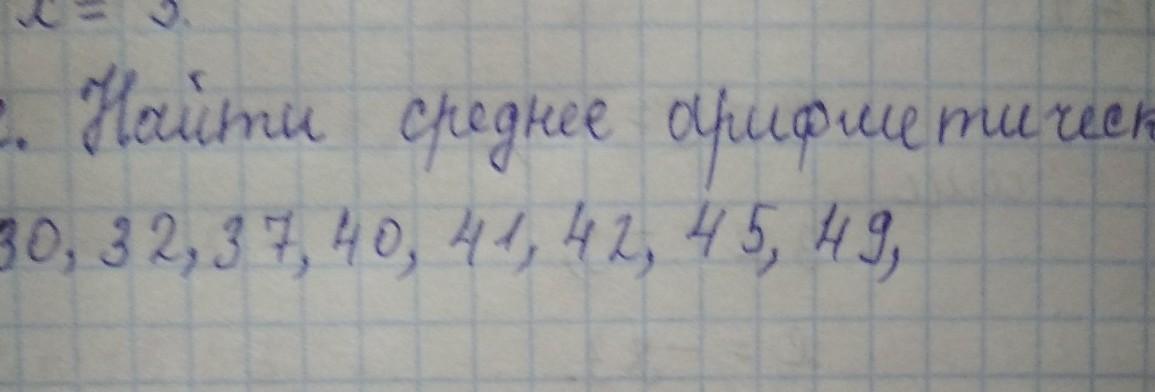 x = 3.
. Найти среднее арифметическ
30, 32, 37, 40, 41, 42, 45, 49,